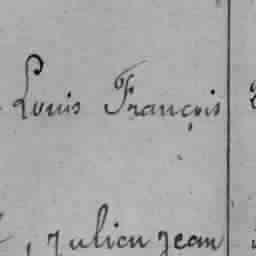 Louis François
, Julien Jean